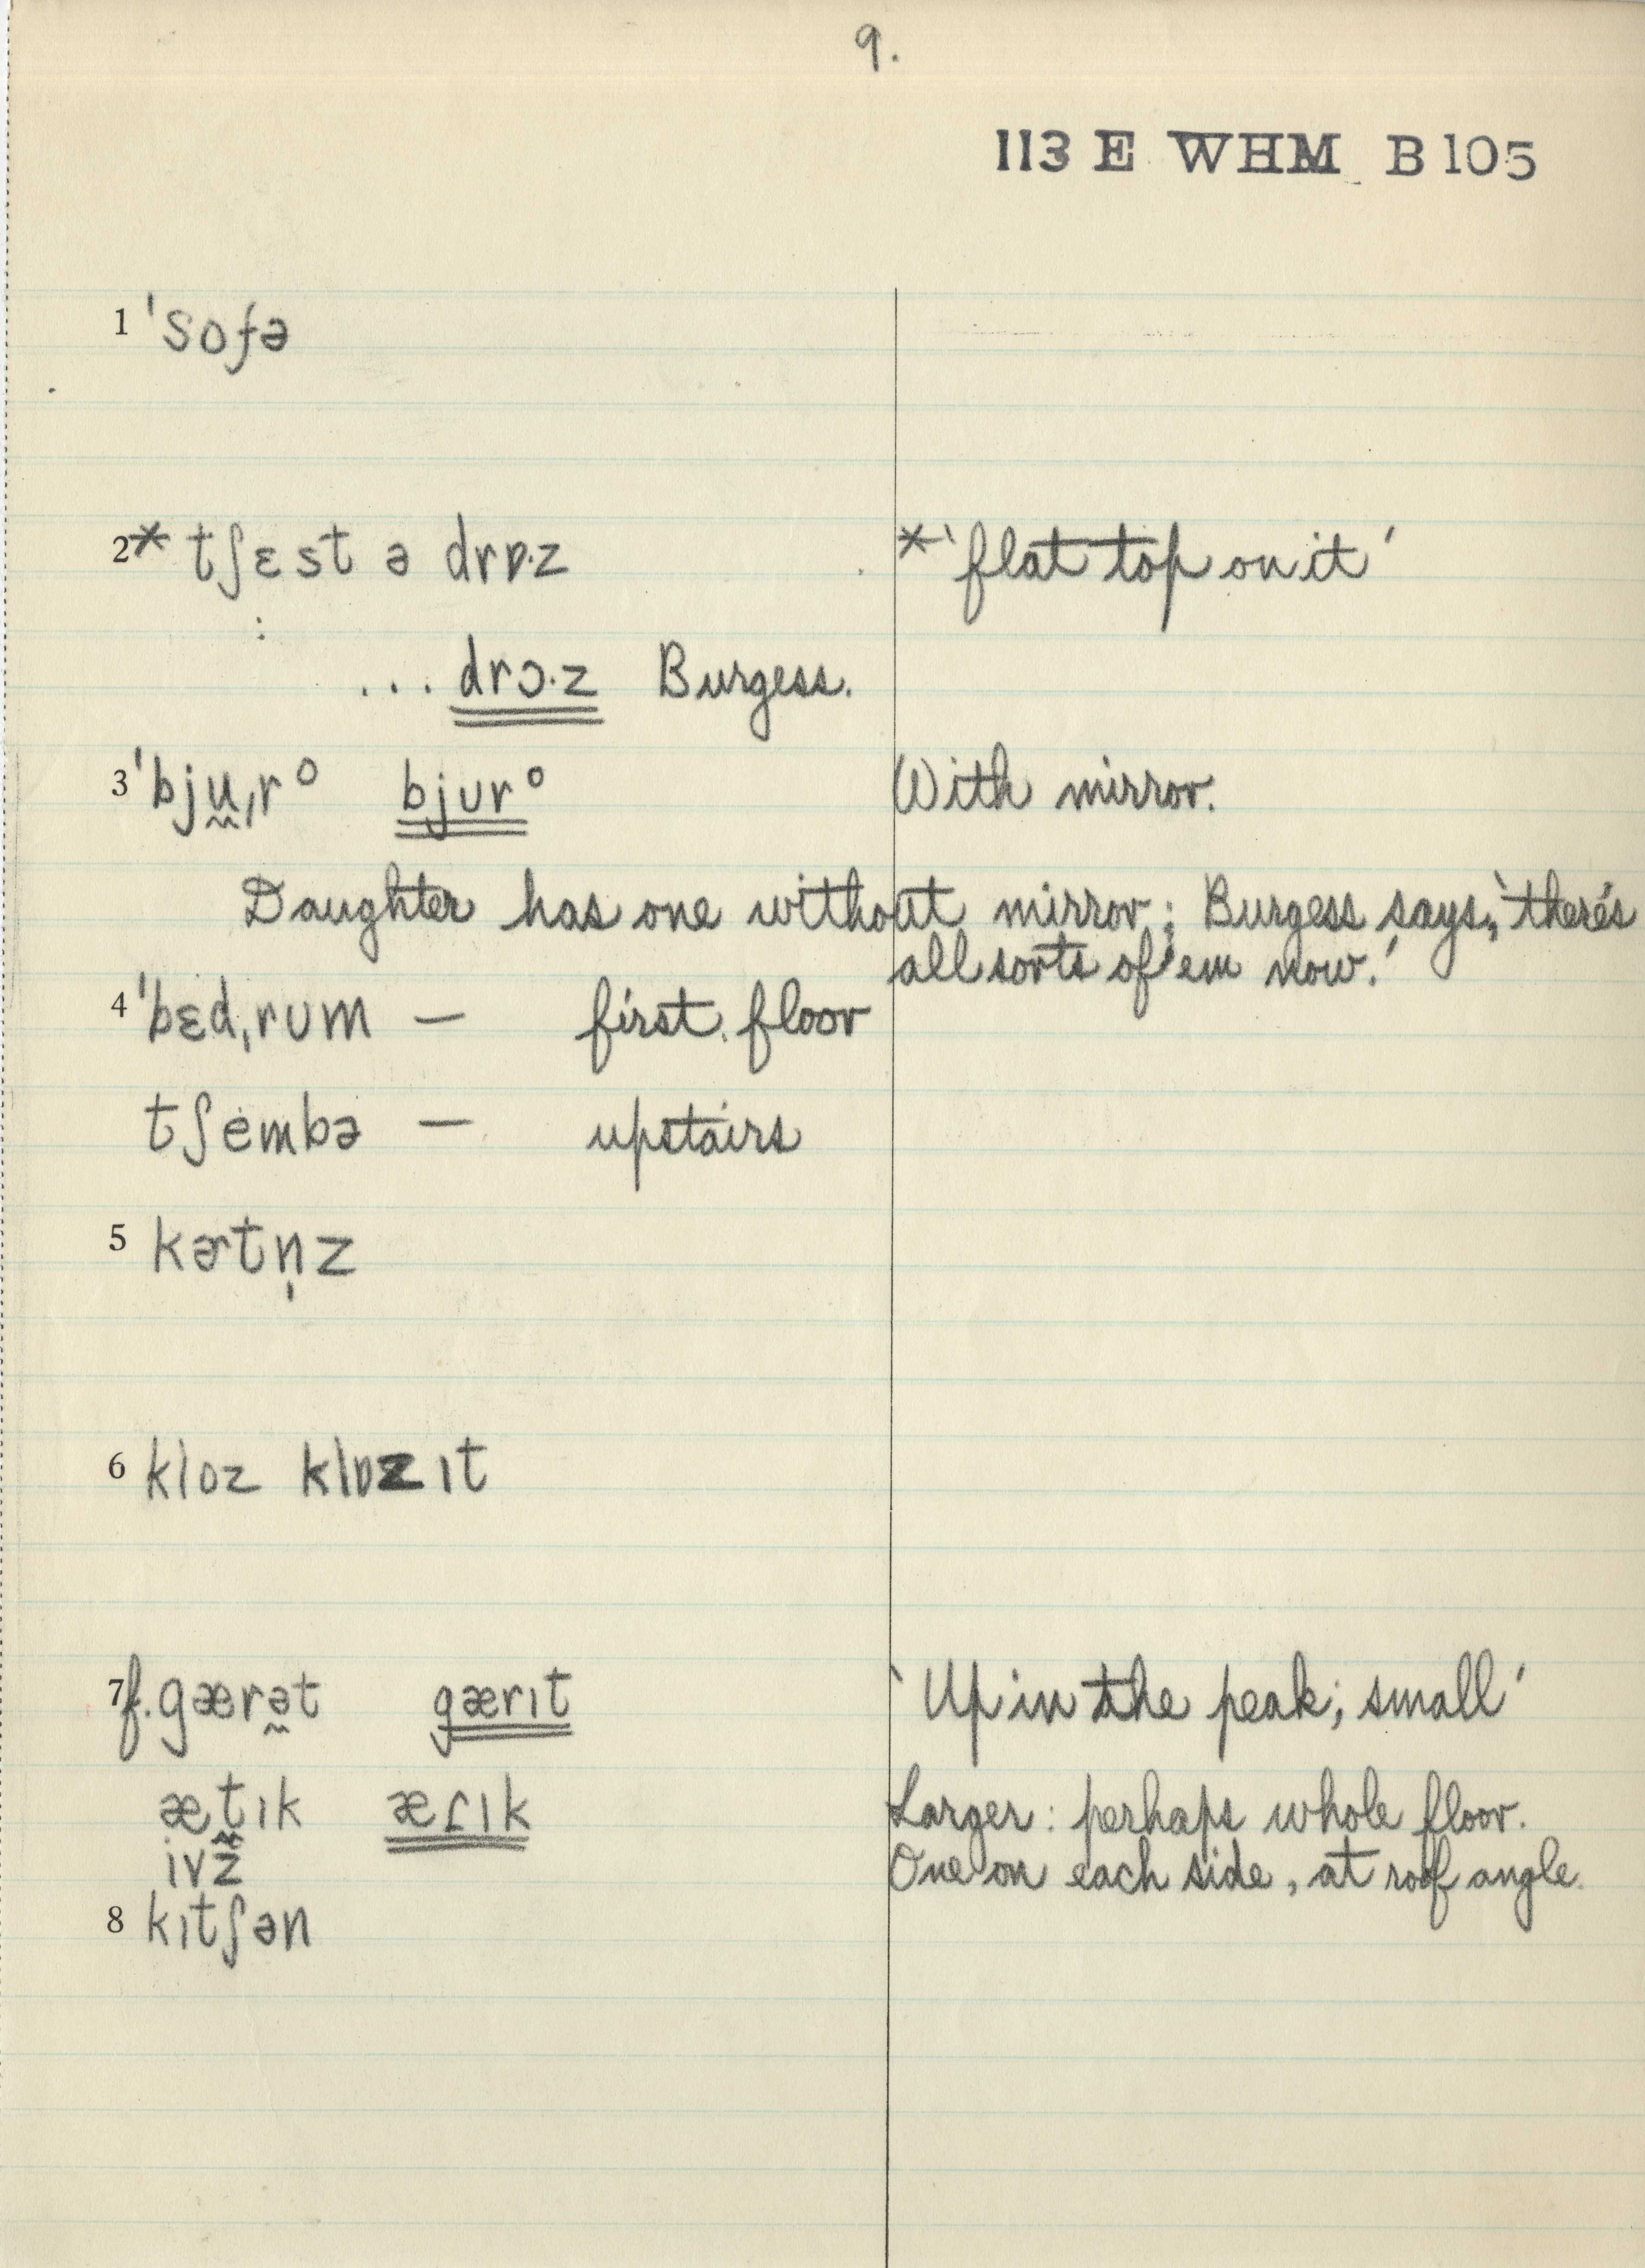 9.
113 E WHM B105
1 ˈsofə
2* tʃɛst ə drɒ·z *‘flat top on it’
... drɔ·z Burgess.
3 ˈbjṵˌrᵒ bjʊrᵒ With mirror.
Daughter has one without mirror; Burgess says, ‘there's
all sorts of 'em now.’
4 ˈbɛdˌrʊm — first floor
tʃembə — upstairs
5 kɚtn̩z
6 kloz klɒzɪt
7 f. gærə̰t gærɪt ‘Up in the peak; small’
ætɪk æɾɪk Larger: perhaps whole floor.
ivz One on each side, at roof angle.
8 kɪtʃən